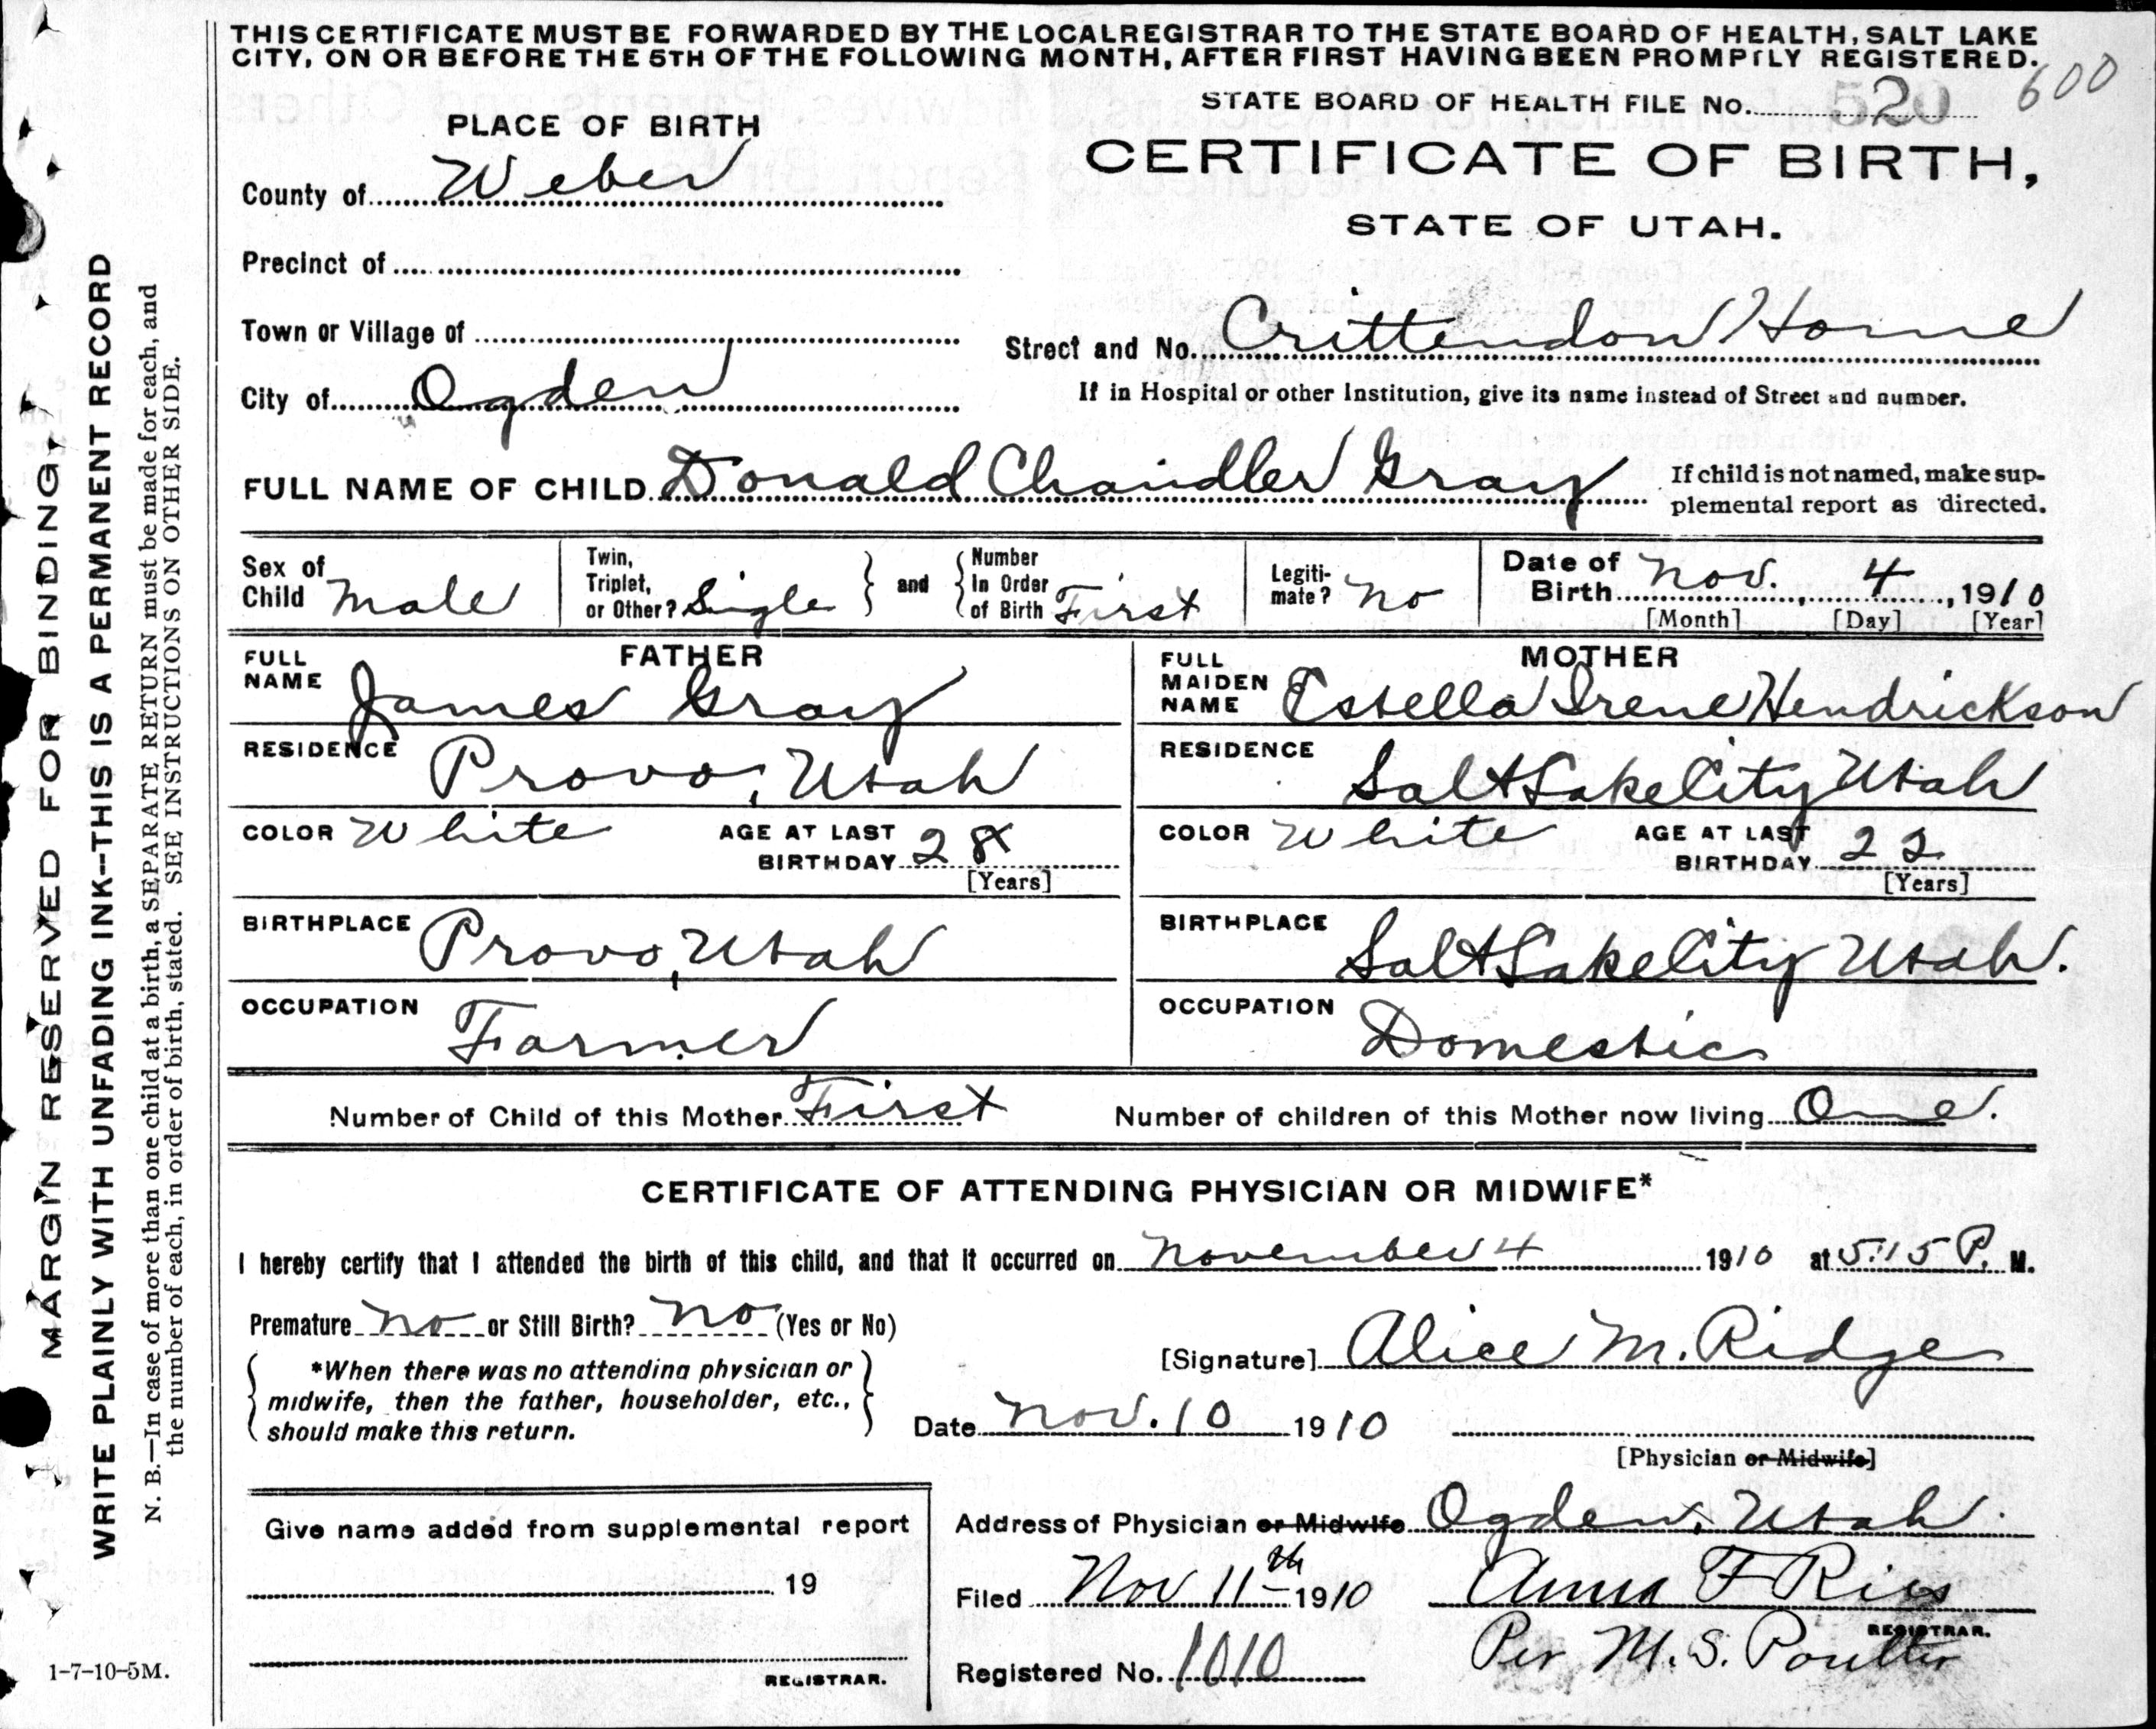 THIS CERTIFICATE MUST BE FORWARDED BY THE LOCAL REGISTRAR TO THE STATE BOARD OF HEALTH, SALT LAKE
CITY, ON OR BEFORE THE 5TH OF THE FOLLOWING MONTH, AFTER FIRST HAVING BEEN PROMPTLY REGISTERED.
STATE BOARD OF HEALTH FILE No. 520 600
PLACE OF BIRTH
CERTIFICATE OF BIRTH,
County of Weber
STATE OF UTAH.
Precinct of
Town or Village of
Street and No. Crittendon Home
City of Ogden
If in Hospital or other Institution, give its name instead of Street and number.
FULL NAME OF CHILD Donald Chandler Gray
If child is not named, make sup-
plemental report as directed.
Sex of Child Male
Twin, Triplet, or Other? Single and Number In Order of Birth First
Legiti-mate? No
Date of Birth Nov. 4, 1910
[Month] [Day] [Year]
FATHER
FULL NAME James Gray
RESIDENCE Provo, Utah
COLOR White AGE AT LAST BIRTHDAY 28
[Years]
BIRTHPLACE Provo, Utah
OCCUPATION Farmer
MOTHER
FULL MAIDEN NAME Estella Irene Hendrickson
RESIDENCE Salt Lake City Utah
COLOR White AGE AT LAST BIRTHDAY 22
[Years]
BIRTHPLACE Salt Lake City Utah.
OCCUPATION Domestic
Number of Child of this Mother First Number of children of this Mother now living One.
CERTIFICATE OF ATTENDING PHYSICIAN OR MIDWIFE*
I hereby certify that I attended the birth of this child, and that it occurred on November 4 1910 at 5:15 P. M.
Premature No or Still Birth? No (Yes or No)
*When there was no attending physician or
midwife, then the father, householder, etc.,
should make this return.
[Signature] Alice M. Ridge
Date Nov. 10 1910
[Physician or Midwife]
Give name added from supplemental report
19
REGISTRAR.
Address of Physician or Midwife Ogden, Utah.
Filed Nov 11th 1910 Anna F Ries
REGISTRAR.
Per M. S. Poulter
Registered No. 1010
1-7-10-5M.
MARGIN RESERVED FOR BINDING.
WRITE PLAINLY WITH UNFADING INK—THIS IS A PERMANENT RECORD
N. B.—In case of more than one child at a birth, a SEPARATE RETURN must be made for each, and
the number of each, in order of birth, stated. SEE INSTRUCTIONS ON OTHER SIDE.